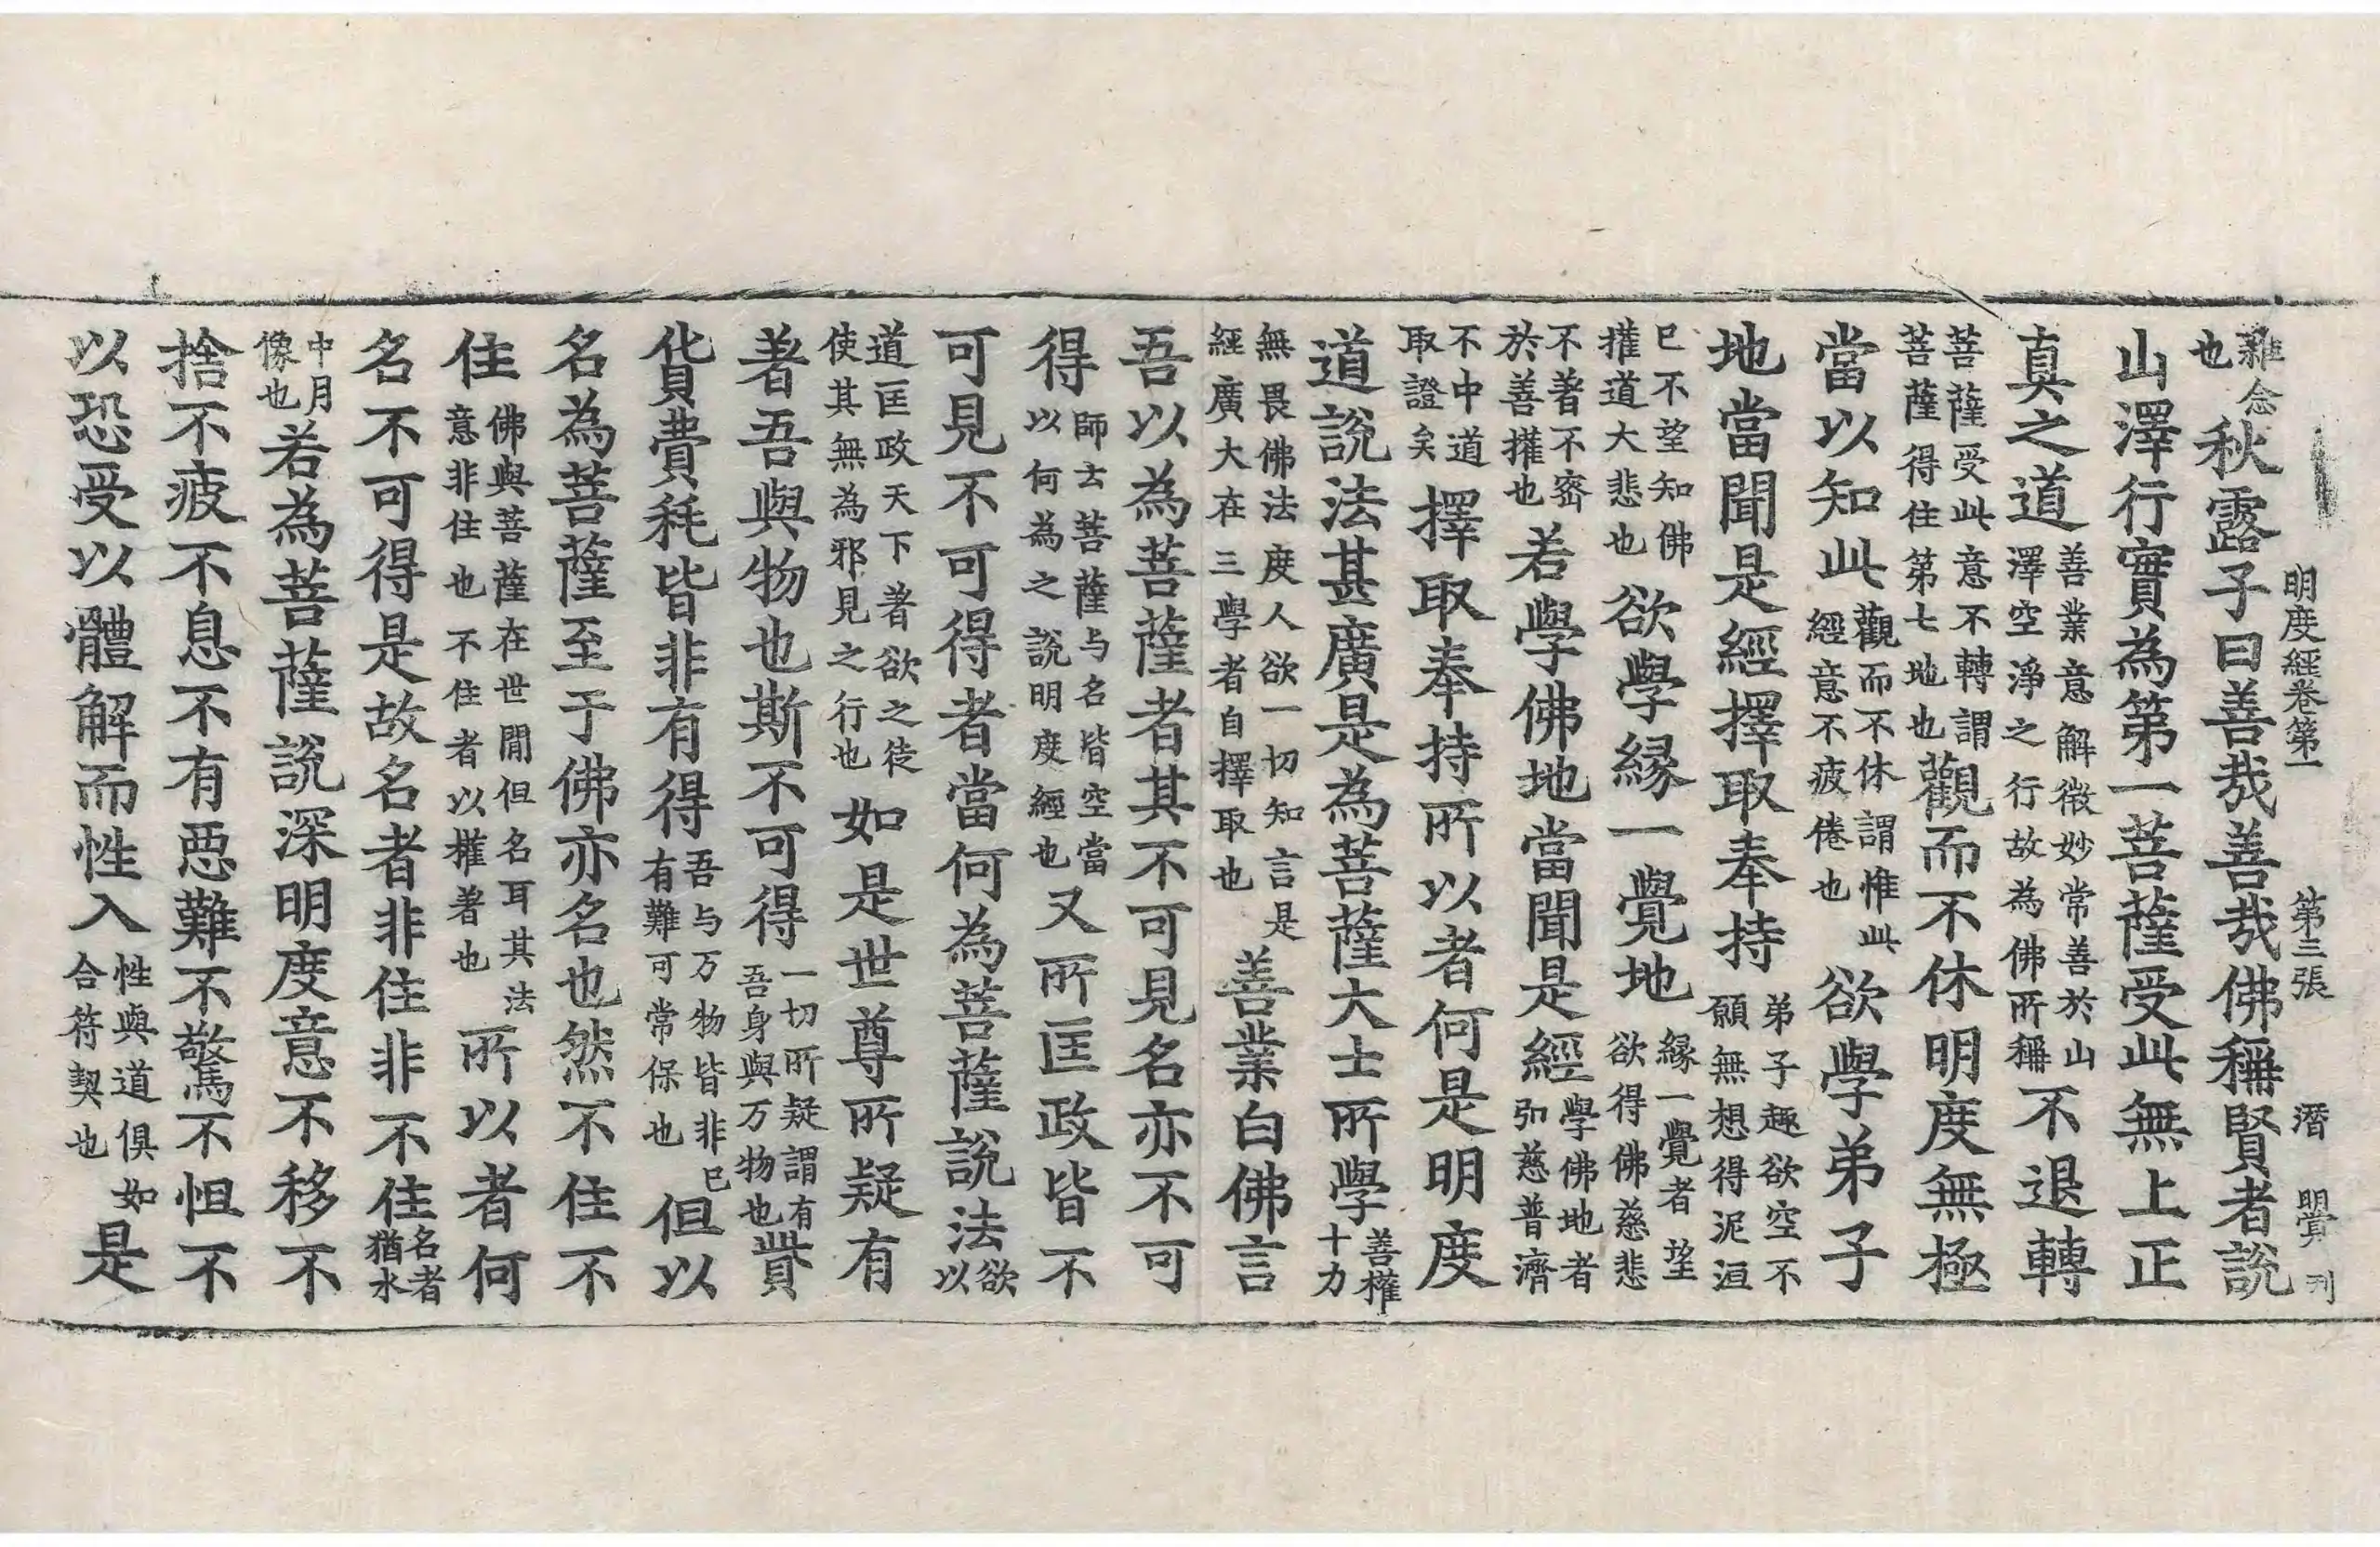 明度經卷第一 第三張 潛 明賞 刊
雜念也秋露子曰善哉善哉佛稱賢者說
山澤行實為第一菩薩受此無上正
真之道善業意解微妙常善於山澤空淨之行故為佛所稱不退轉
菩薩受此意不轉謂菩薩得住第七地也觀而不休明度無極
當以知此觀而不休謂惟此經意不疲倦也欲學弟子
地當聞是經擇取奉持弟子趣欲空不願無想得泥洹
已不望知佛㩲道大悲也欲學緣一覺地緣一覺者望欲得佛慈悲
不著不密於善㩲也若學佛地當聞是經學佛地者弘慈普濟
不中道取證矣擇取奉持所以者何是明度
道說法甚廣是為菩薩大士所學善權十力
無畏佛法度人欲一切知言是經廣大在三學者自擇取也善業白佛言
吾以為菩薩者其不可見名亦不可
得師去菩薩与名皆空當以何為之說明度經也又所匡政皆不
可見不可得者當何為菩薩說法欲以
道匡政天下著欲之徒使其無為邪見之行也如是世尊所疑有
著吾與物也斯不可得一切所疑謂有吾身與万物也貲
貨費秏皆非有得吾与万物皆非已有難可常保也但以
名為菩薩至于佛亦名也然不住不
住佛與菩薩在世間但名耳其法意非住也不住者以權著也所以者何
名不可得是故名者非住非不住名者猶水
中月像也若為菩薩說深明度意不移不
捨不疲不息不有惡難不驚不怛不
以恐受以體解而性入性與道俱如合符契也是